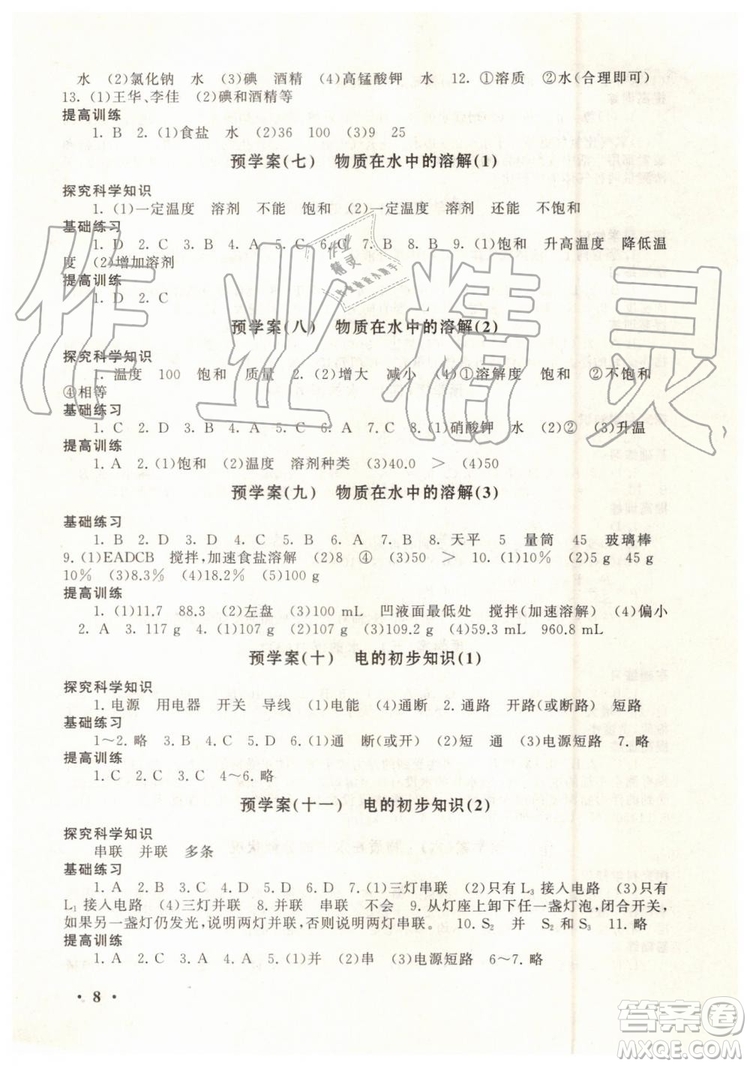 水 (2)氯化钠 水 (3)碘 酒精 (4)高锰酸钾 水 12. ①溶质 ②水(合理即可)
13. (1)王华、李佳 (2)碘和酒精等
提高训练
1. B 2. (1)食盐 水 (2)36 100 (3)9 25
预学案(七) 物质在水中的溶解(1)
探究科学知识
1. (1)一定温度 溶剂 不能 饱和 (2)一定温度 溶剂 还能 不饱和
基础练习
1. D 2. C 3. B 4. A 5. C 6. C 7. B 8. A 9. (1)饱和 升高温度 降低温
度 (2)增加溶剂
提高训练
1. D 2. C
预学案(八) 物质在水中的溶解(2)
探究科学知识
1. 温度 100 饱和 质量 2. (2)增大 减小 (4)①溶解度 饱和 ②不饱和
④相等
基础练习
1. C 2. D 3. B 4. A 5. C 6. A 7. C 8. (1)硝酸钾 (2)② (3)升温
提高训练
1. A 2. (1)饱和 (2)温度 溶剂种类 (3)40.0 > (4)50
预学案(九) 物质在水中的溶解(3)
基础练习
1. B 2. D 3. D 4. C 5. B 6. A 7. B 8. 天平 量筒 45 玻璃棒
9. (1)EADCB 搅拌,加速食盐溶解 (2)8 ④ (3)50 > 10. (1)C (2)5 g 45 g
10% (3)8.3% (4)18.2% (5)100 g (6)100 g
提高训练
1. (1)11.7 88.3 (2)左盘 (3)100 mL 凹液面最低处 搅拌(加速溶解) (4)偏小
2. A 3. 117 g 4. (1)100g (2)50g (3)380g (4)59.3 mL 960.8 mL
预学案(十) 电的初步知识(1)
探究科学知识
1. 电源 用电器 开关 导线 (1)电能 (4)通断 2. 通路 开路(或断路) 短路
基础练习
1～2. 略 3. A 4. C 5. D 6. (1)通 断(或开) (2)短 通 (3)电源短路 7. 略
提高训练
1. C 2. C 3. C 4～6. 略
预学案(十一) 电的初步知识(2)
探究科学知识
串联 并联 多条
基础练习
1. A 2. D 3. A 4. C 5. A 6. C 7. (1)三灯串联 (2)只有 L₃ 接入电路 (3)只有
L₁ 接入电路 (4)三灯并联 8. 并联 串联 不会 9. 从灯座上卸下任意一盏灯泡,闭合开关,
如果另一盏灯仍发光,说明两灯并联,否则说明两灯串联。 10. S₂ 并 S₂ 和 S₃ 11. 略
提高训练
1. C 2. D 3. A 4. C 5. (1)并 (2)串 (3)电源短路 6～7. 略
• 8 •
作业精灵
答案圈
MXQE.COM